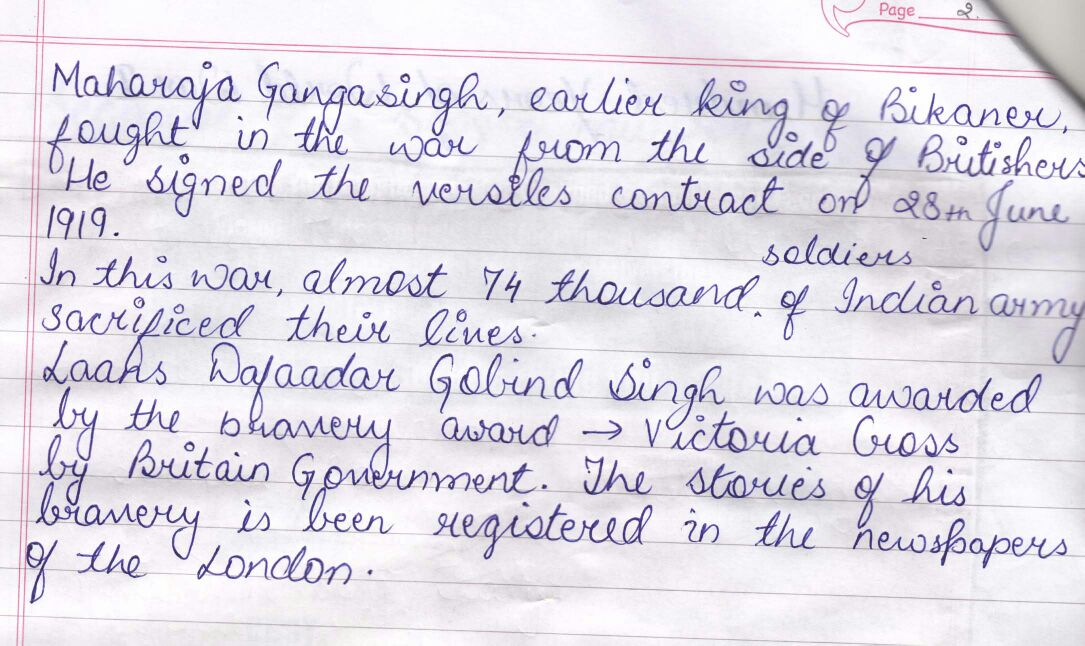 Page 2.
Maharaja Gangasingh, earlier king of Bikaner,
fought in the war from the side of Britishers
He signed the versiles contract on 28th June
1919.
soldiers
In this war, almost 74 thousand of Indian army
sacrificed their lives.
Laans Dafaadar Gobind Singh was awarded
by the bravery award → Victoria Cross
by Britain Government. The stories of his
bravery is been registered in the newspapers
of the London.